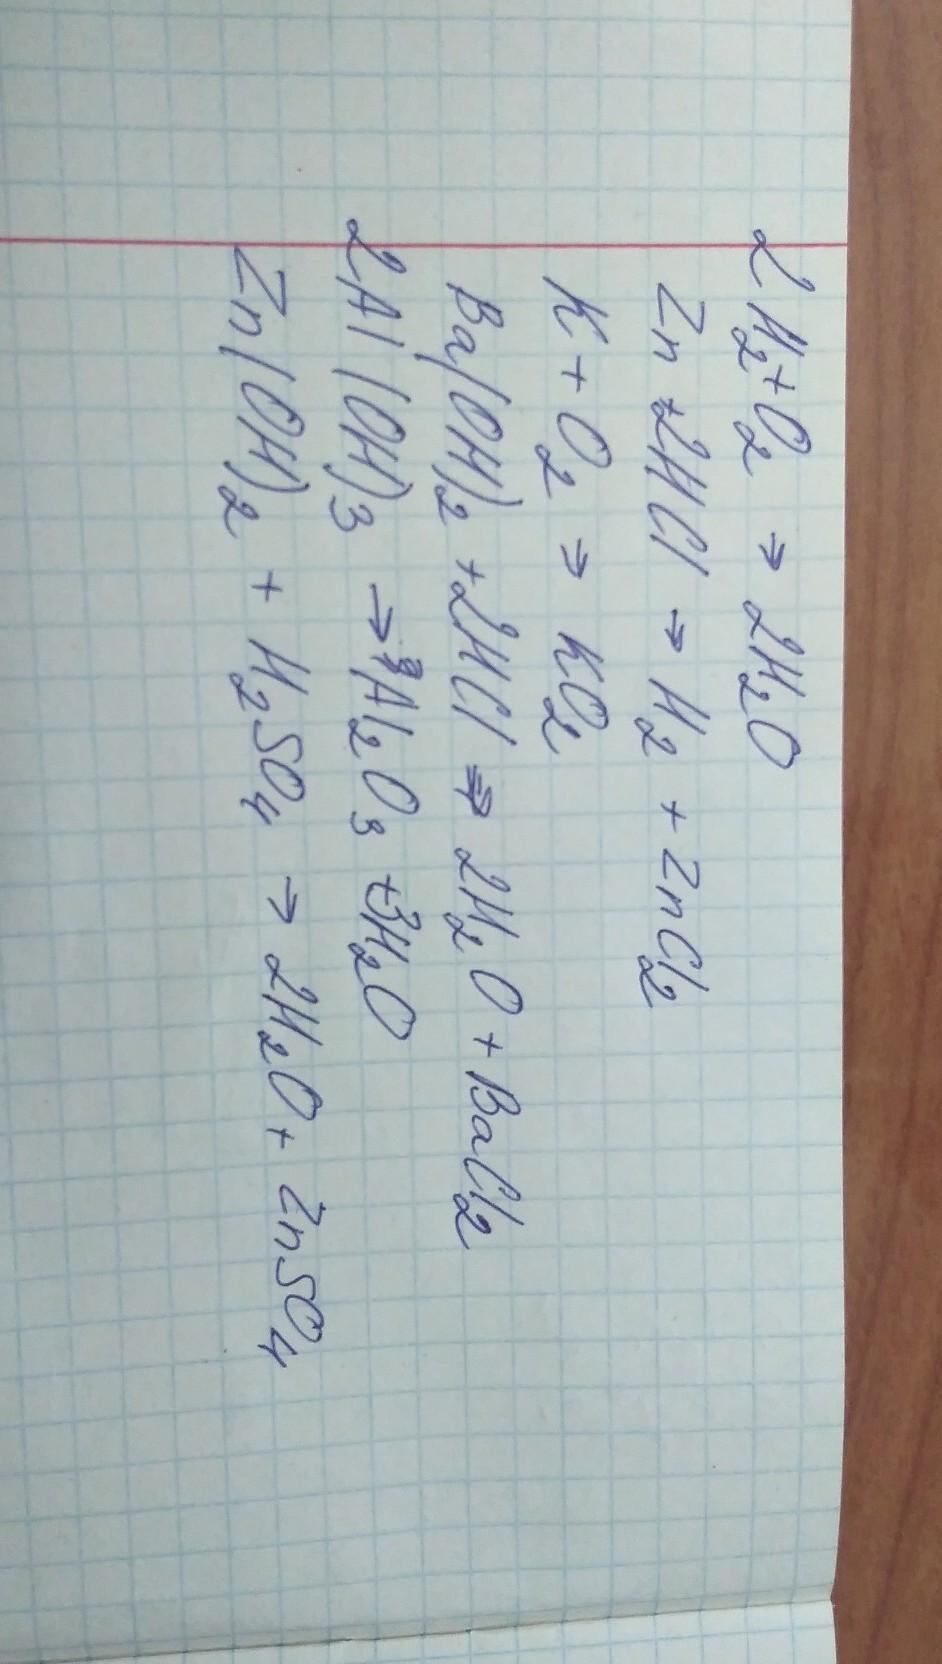 2H₂+O₂ → 2H₂O
Zn+2HCl → H₂ + ZnCl₂
K+O₂ → KO₂
Ba(OH)₂ +2HCl → 2H₂O + BaCl₂
2Al(OH)₃ → Al₂O₃ +3H₂O
Zn(OH)₂ + H₂SO₄ → 2H₂O + ZnSO₄